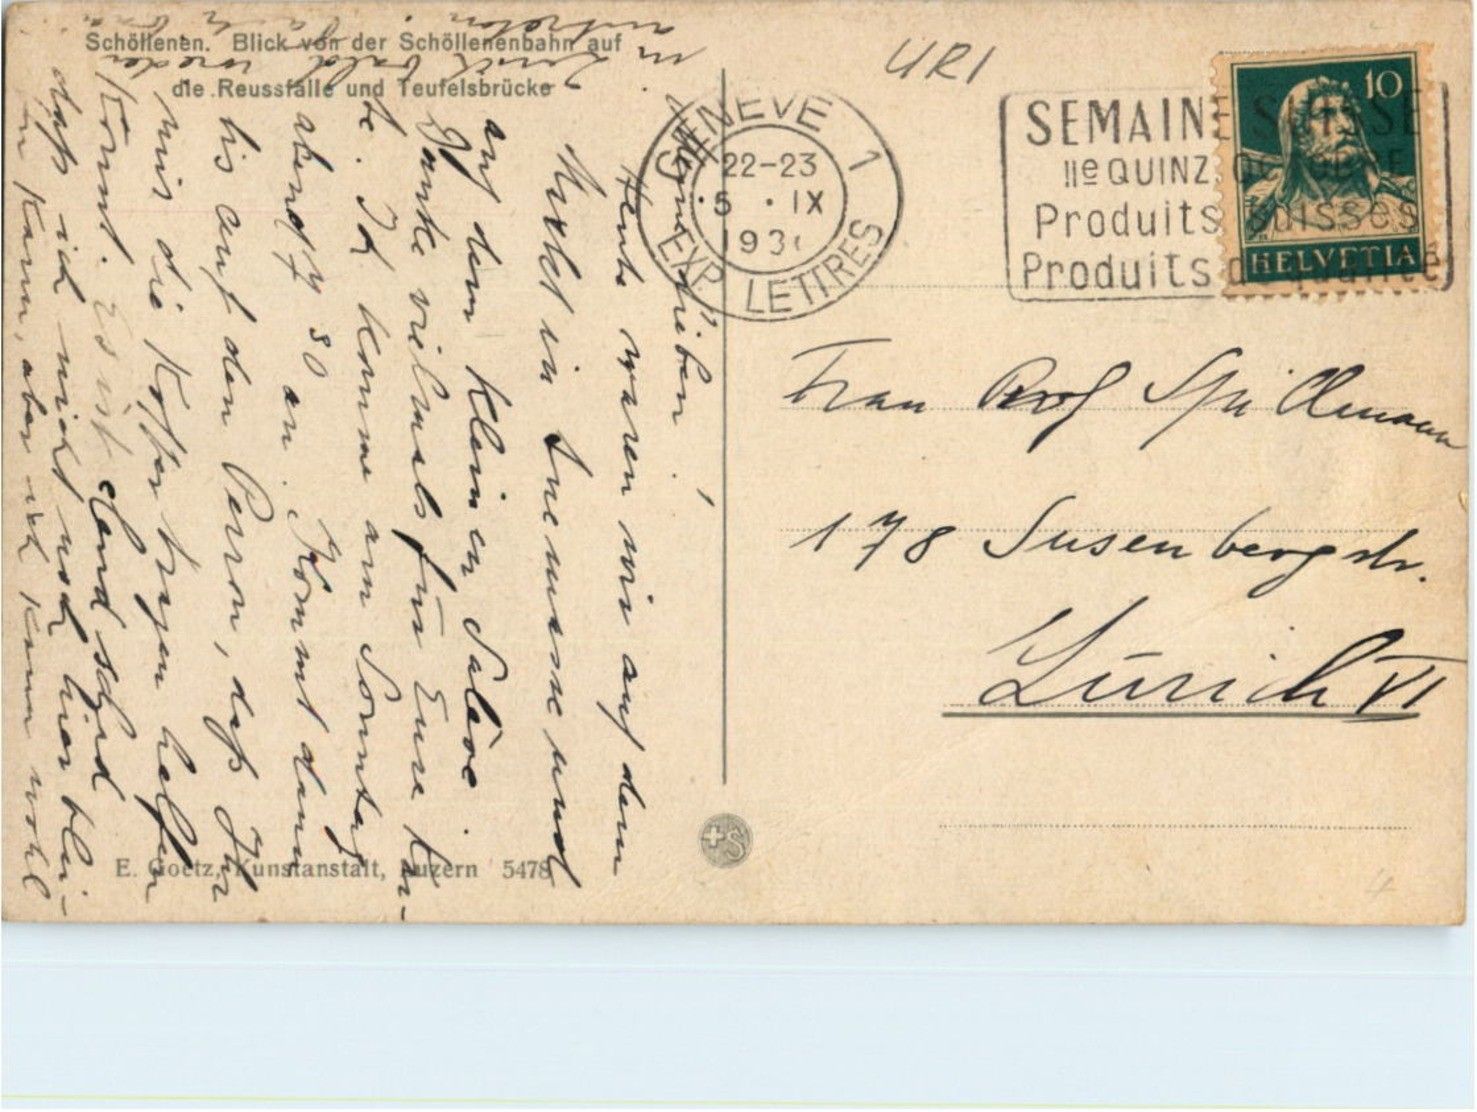 Schöllenen. Blick von der Schöllenenbahn auf
die Reussfälle und Teufelsbrücke
URI
GENEVE 1
22-23
5 . IX
193
EXP. LETTRES
SEMAINE SUISSE
IIe QUINZ. OCTOBRE
Produits suisses
Produits de qualité
10
HELVETIA
Frau Prof Spillmann
178 Susenbergstr.
Zürich VI
Meine Lieben!
Heute waren wir auf dem
in und
auf dem kleinen Salève
Danke vielmals für Eure Kar-
te. Ich komme am Sonntag
abend 7 30 an. Kommt dann
bis auf den Perron, daß Ihr
mir die Koffer tragen helfen
könnt. Es ist elend schad
daß ich nicht noch hier blei-
ben kann, aber ich kann wohl
bald wieder
E. Goetz, Kunstanstalt, Luzern 5478
+S